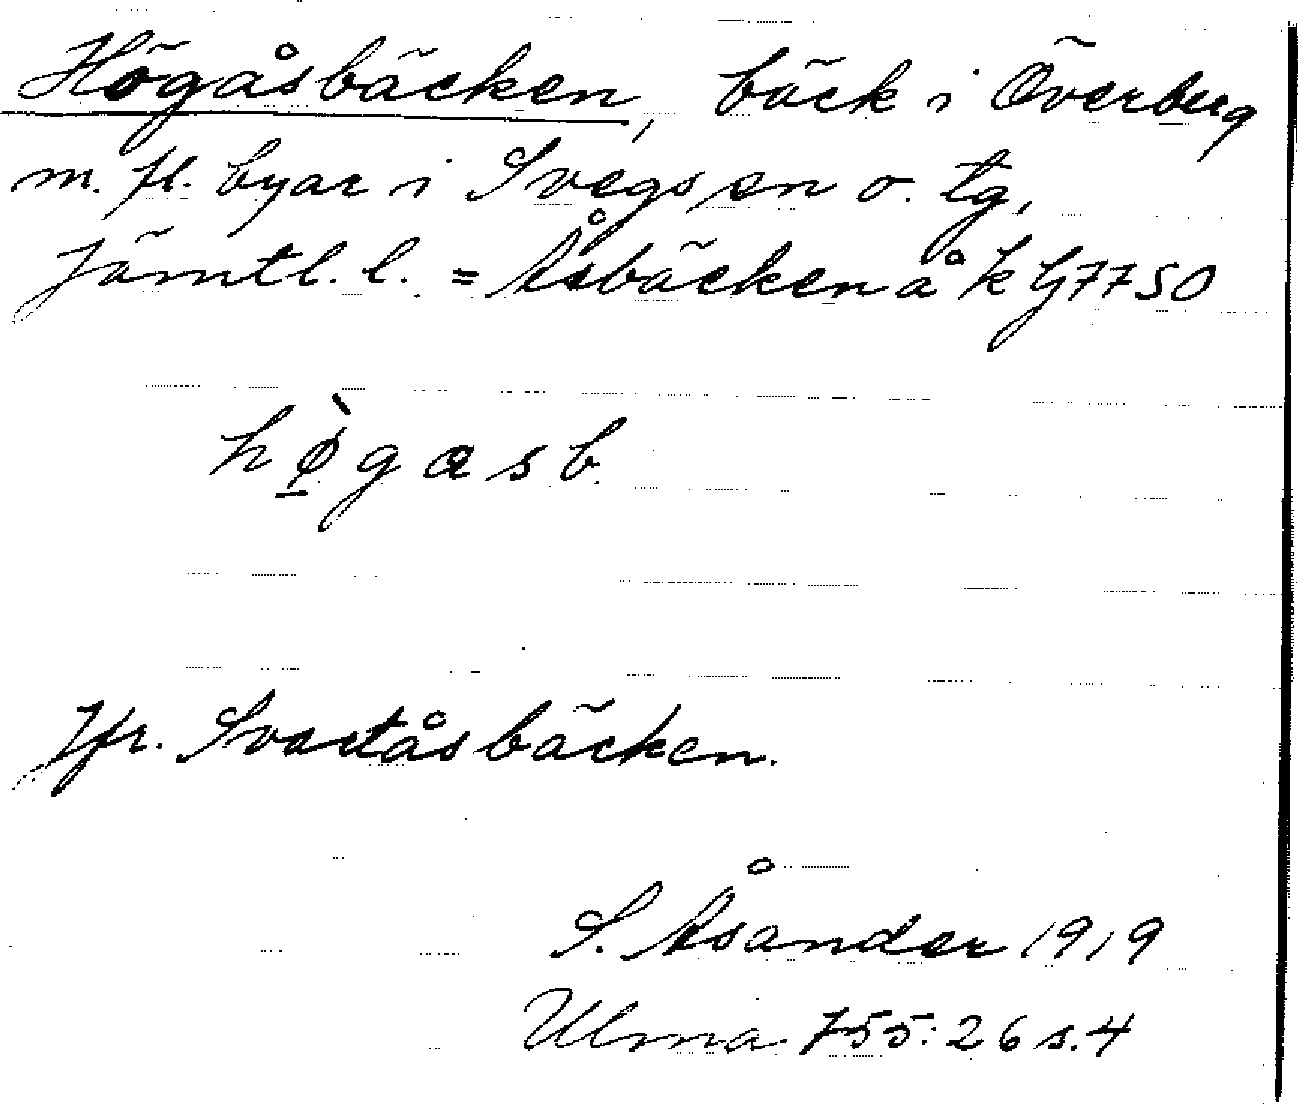 Högåsbäcken, bäck i Överberg
m. fl. byar i Svegs sn o. tg,
Jämtl. l. = Åsbäcken å k G 7750
hø̱̀gasb.
Jfr. Svartåsbäcken.
S. Åsander 1919
Ulma 755:26 s.4